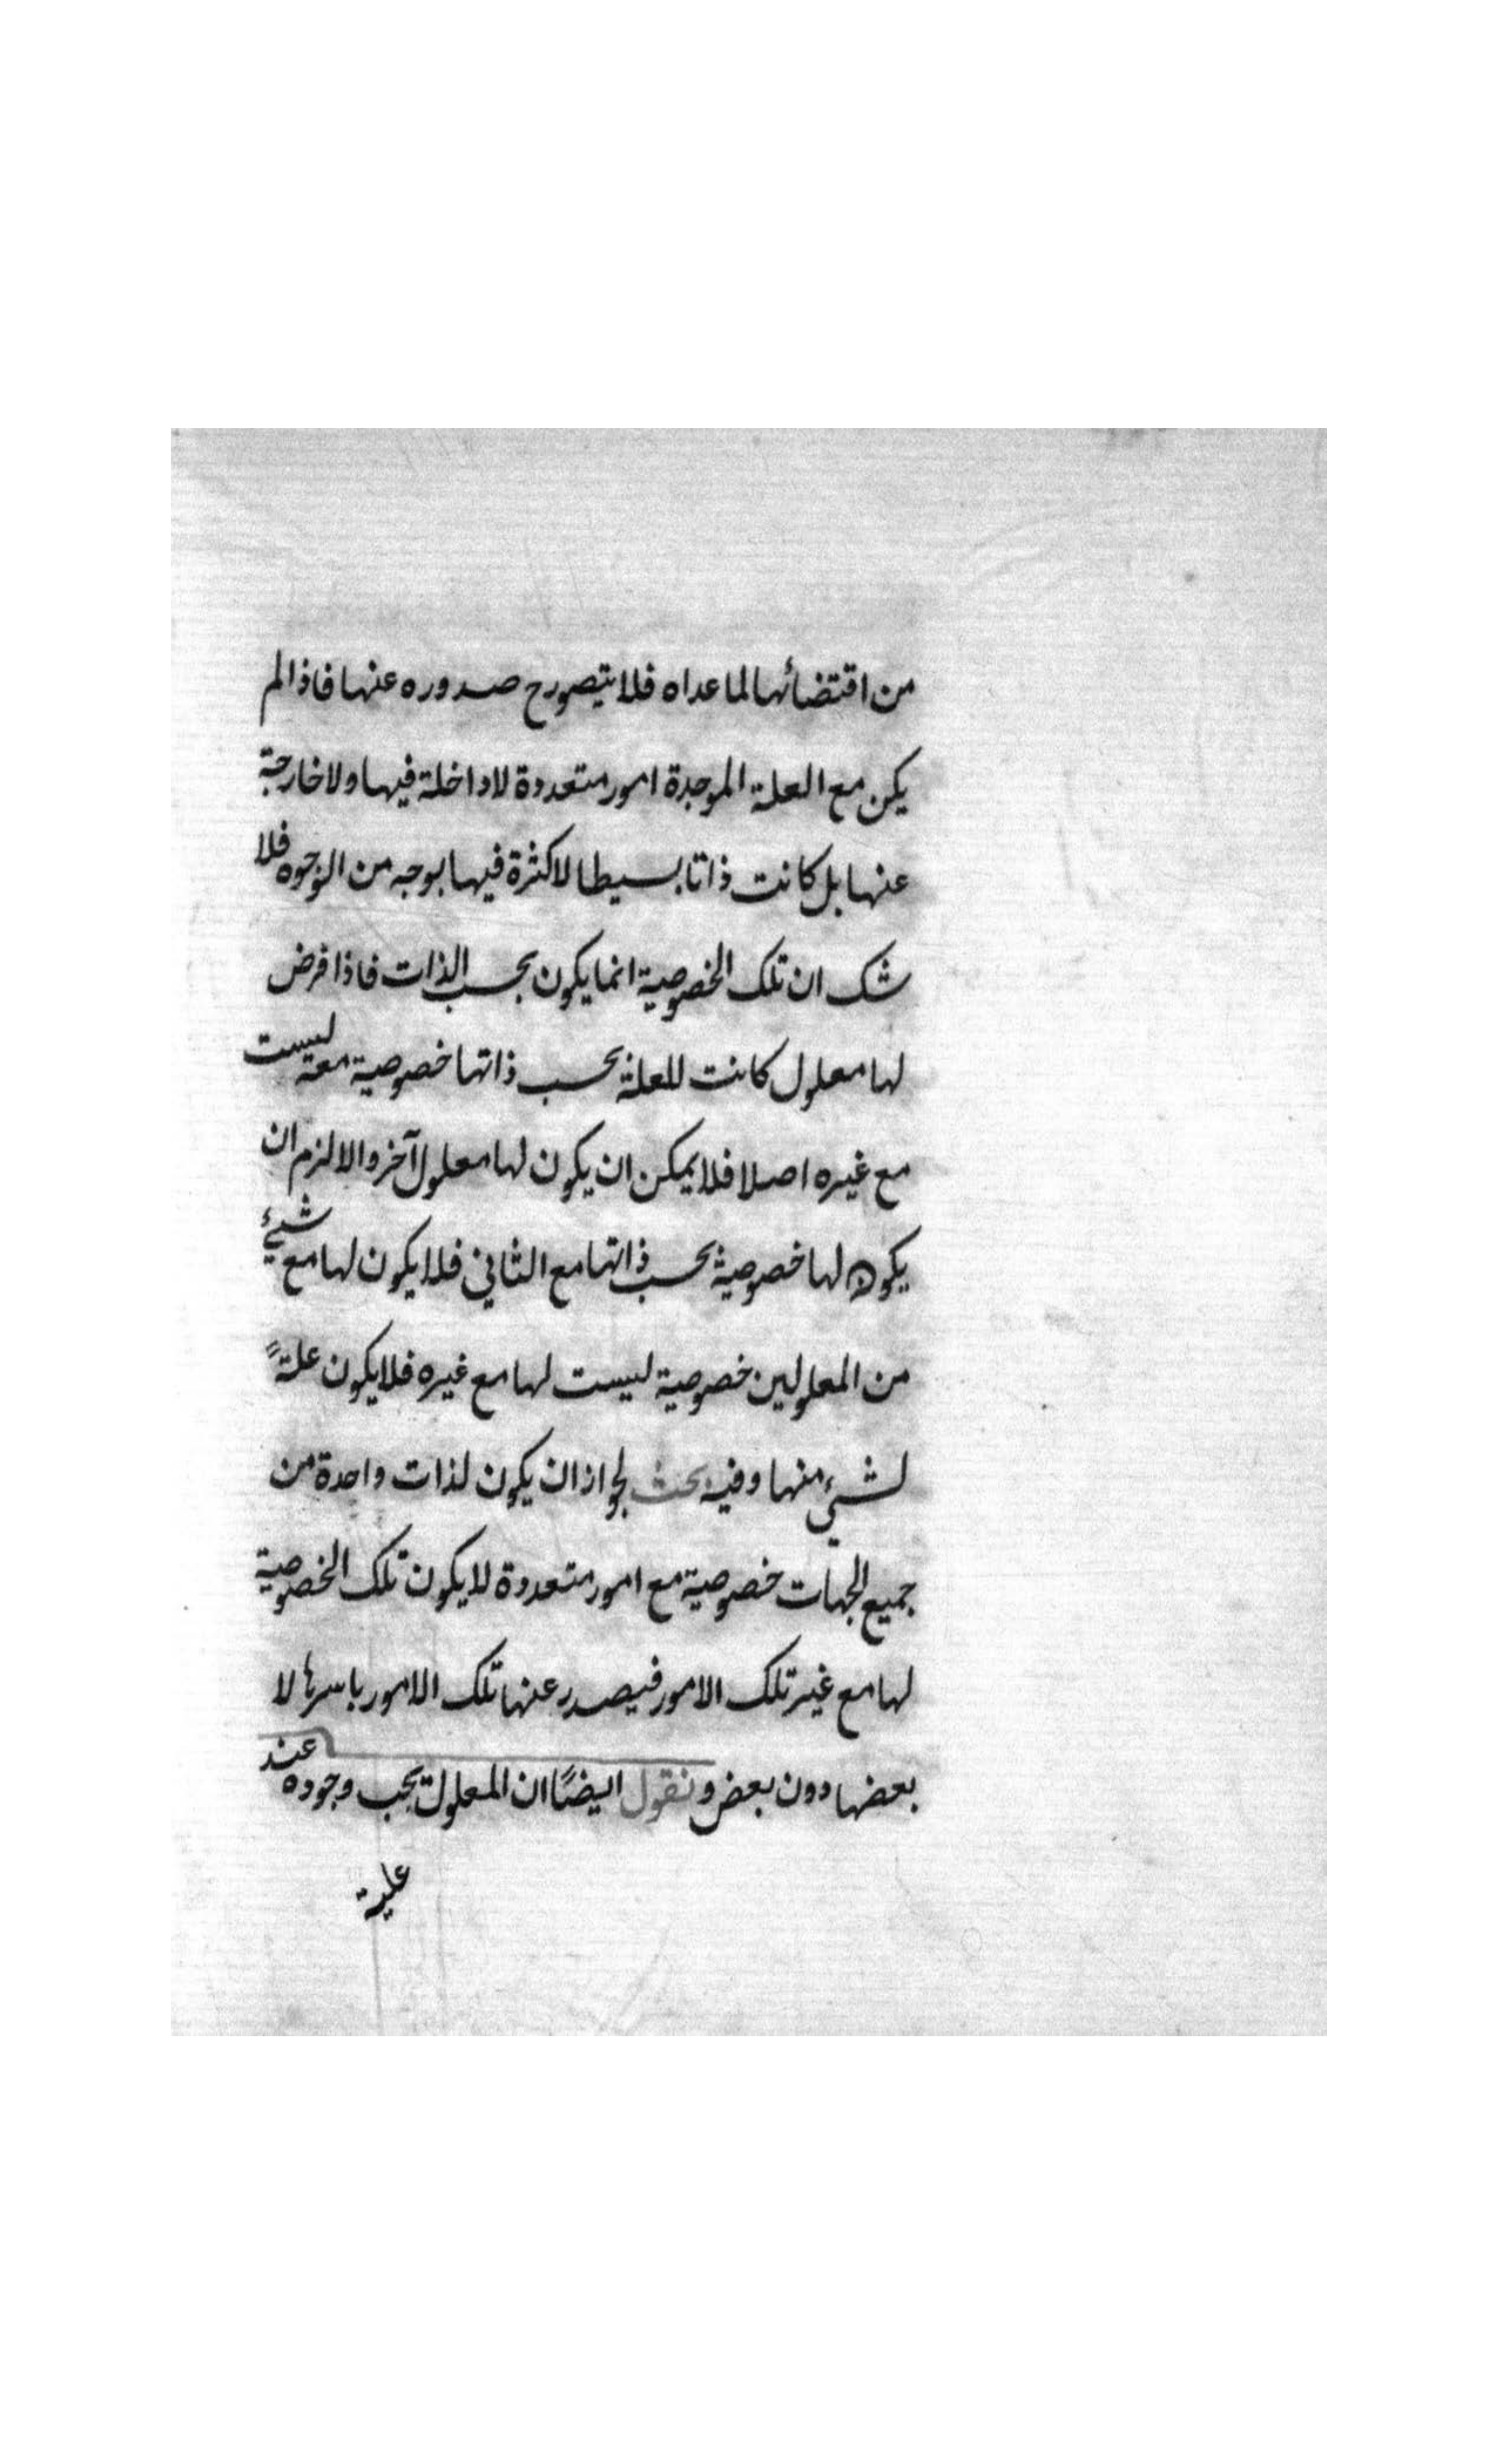 من اقتضائها لما عداه فلا يتصور ح صدوره عنها فاذا لم
يكن مع العلة الموجدة امور متعددة لا داخلة فيها ولا خارجة
عنها بل كانت ذاتا بسيطا لا كثرة فيها بوجه من الوجوه فلا
شك ان تلك الخصوصية انما يكون بحسب الذات فاذا فرض
لها معلول كانت للعلة بحسب ذاتها خصوصية معه ليست
مع غيره اصلا فلا يمكن ان يكون لها معلول آخر والا لزم ان
يكون لها خصوصية بحسب ذاتها مع الثاني فلا يكون لها مع شيئ
من المعلولين خصوصية ليست لها مع غيره فلا يكون علةً
لشيئ منها وفيه بحث لجواز ان يكون لذات واحدة من
جميع الجهات خصوصية مع امور متعددة لا يكون تلك الخصوصية
لها مع غير تلك الامور فيصدر عنها تلك الامور باسرها لا
بعضها دون بعض ونقول ايضًا ان المعلول يجب وجوده عند